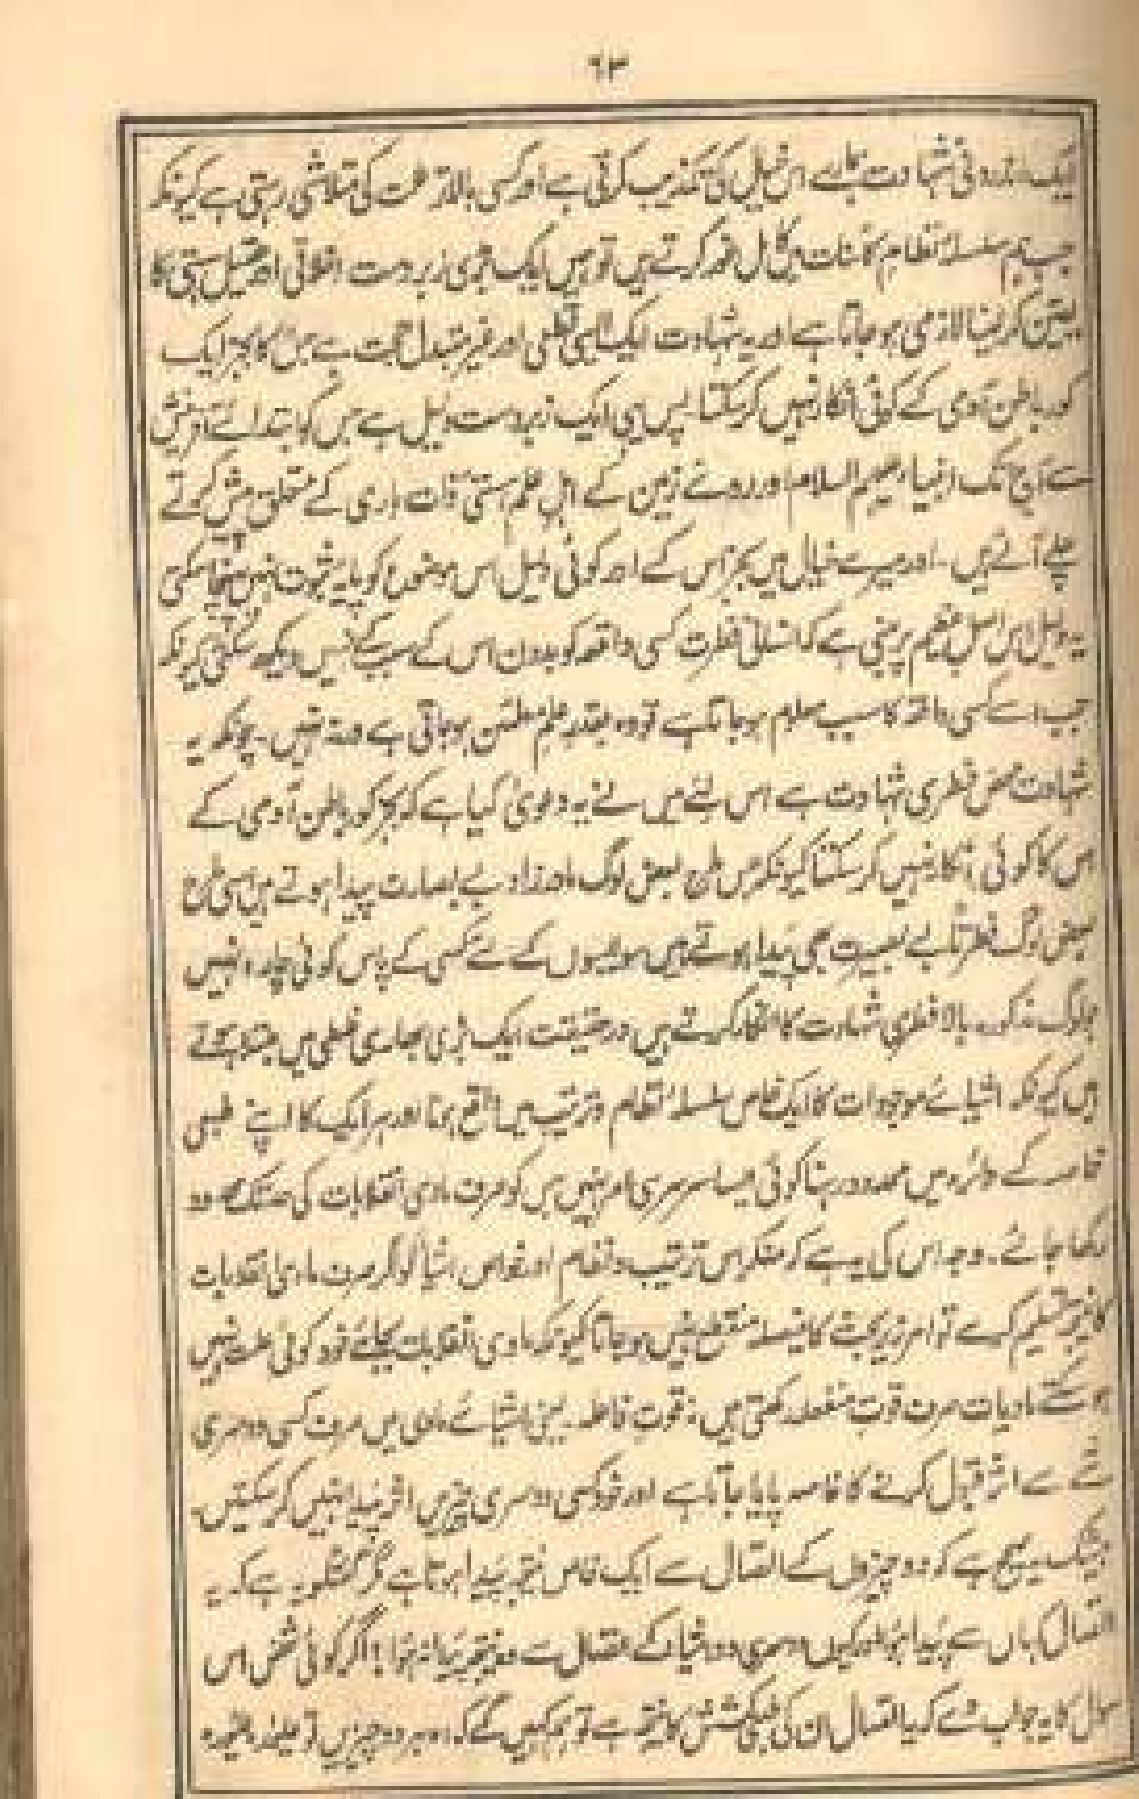 ۶۳
ایک اندرونی شہادت ہمارے اس خیال کی تکذیب کرتی ہے اور کسی بالاتر علت کی متلاشی رہتی ہے کیونکہ
جب ہم سلسلۂ نظام کائنات میں کامل غور کرتے ہیں تو ہمیں ایک بڑی زبردست اخلاقی اور عقیل ہستی کا
یقین کر لینا لازمی ہو جاتا ہے اور یہ شہادت ایک ایسی قطعی اور غیر متبدل حجت ہے جس کا بجز ایک
کور باطن آدمی کے کوئی انکار نہیں کر سکتا پس یہی ایک زبردست دلیل ہے جس کو ابتدائے آفرینش
سے آج تک انبیاء علیہم السلام اور روئے زمین کے اہل علم ہستیٔ ذات باری کے متعلق پیش کرتے
چلے آئے ہیں۔ اور میرے خیال میں بجز اس کے اور کوئی دلیل اس موضوع کو پایۂ ثبوت نہیں پہنچا سکتی
یہ دلیل اس اصل عظیم پر مبنی ہے کہ انسانی فطرت کسی واقعہ کو بدون اس کے سبب کے نہیں دیکھ سکتی کیونکہ
جب اسے کسی واقعہ کا سبب معلوم ہو جاتا ہے تو وہ بقدر علم مطمئن ہو جاتی ہے ورنہ نہیں۔ چونکہ یہ
شہادت محض فطری شہادت ہے اس لئے میں نے یہ دعویٰ کیا ہے کہ بجز کور باطن آدمی کے
اس کا کوئی انکار نہیں کر سکتا کیونکہ جس طرح بعض لوگ مادرزاد بے بصارت پیدا ہوتے ہیں اسی طرح
بعض لوگ فطرتاً بے بصیرت بھی پیدا ہوتے ہیں سو ایسوں کے لئے کسی کے پاس کوئی چارہ نہیں
جو لوگ مذکورہ بالا فطری شہادت کا انکار کرتے ہیں درحقیقت ایک بڑی بھاری غلطی میں مبتلا ہوتے
ہیں کیونکہ اشیائے موجودات کا ایک خاص سلسلۂ نظام و ترتیب میں واقع ہونا اور ہر ایک کا اپنے طبعی
خاصہ کے دائرہ میں محدود رہنا کوئی ایسا سرسری امر نہیں جس کو صرف مادی انقلابات کی حد تک محدود
رکھا جائے۔ وجہ اس کی یہ ہے کہ منکر اس ترتیب و نظام اور خواص اشیا کو اگر صرف مادی انقلابات
کا نتیجہ تسلیم کرے تو امر زیر بحث کا فیصلہ منقطع نہیں ہو جاتا کیونکہ مادی انقلابات بجائے خود کوئی علت نہیں
ہو سکتے مادیات صرف قوت منفعلہ رکھتی ہیں نہ قوت فاعلہ۔ یعنی اشیائے مادی میں صرف کسی دوسری
شے سے اثر قبول کرنے کا خاصہ پایا جاتا ہے اور خود کسی دوسری چیز میں اثر پیدا نہیں کر سکتیں۔
بیشک یہ صحیح ہے کہ دو چیزوں کے اتصال سے ایک خاص نتیجہ پیدا ہوتا ہے مگر گفتگو یہ ہے کہ یہ
اتصال کہاں سے پیدا ہوا اور کیوں دوسری دو اشیا کے اتصال سے وہ نتیجہ پیدا نہ ہوا؟ اگر کوئی شخص اس
سوال کا یہ جواب دے کہ یہ اتصال ان کی کشش کا نتیجہ ہے تو ہم کہیں گے کہ ہر دو چیزیں تو علیحدہ علیحدہ